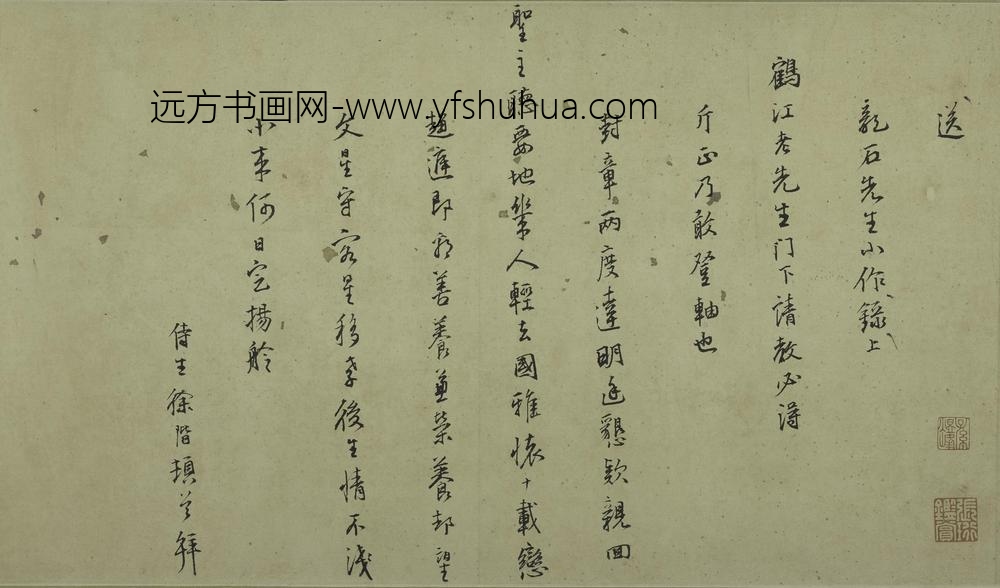 送
龍石先生小作錄上
鶴江老先生門下請教必得
斤正乃敢登軸也
封章兩度達明廷懇欵親回
聖主聽要地幾人輕去國雅懷十載戀
趨庭即宥善養兼榮養却望
文星守客星移孝後生情不淺
小車何日宅揚舲
侍生徐階頓首拜
远方书画网-www.yfshuhua.com